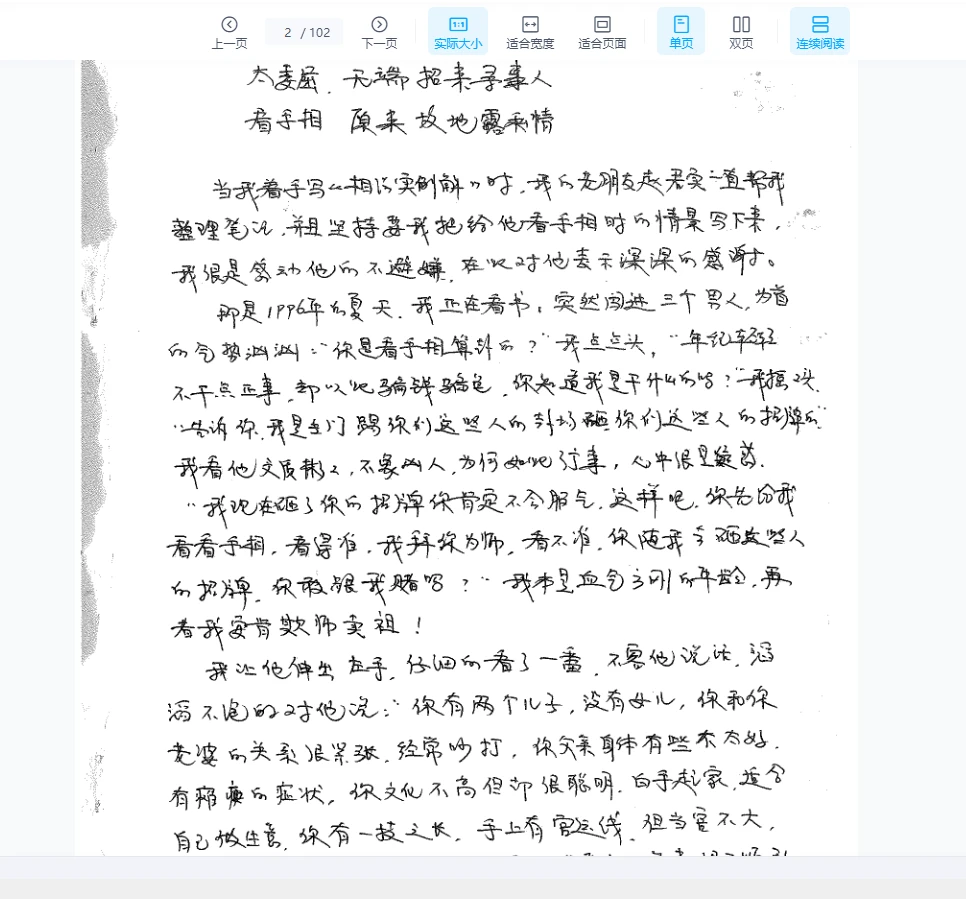 上一页 2 / 102 下一页 实际大小 适合宽度 适合页面 单页 双页 连续阅读
太委屈、无端招来寻事人
看手相 原来故地露私情
当我着手写《相法实例解》时，我的老朋友赵君实一直帮我
整理笔记，并且坚持要我把给他看手相时的情景写下来，
我很是感动他的不避嫌，在此对他表示深深的感谢。
那是1996年的夏天，我正在看书，突然闯进三个男人，为首
的气势汹汹："你是看手相算卦的？"我点点头，"年纪轻轻
不干点正事，却以此骗钱骗色，你知道我是干什么的吗？"我摇摇头
"告诉你，我是专门踢你们这些人的卦场砸你们这些人的招牌的"
我看他文质彬彬，不象凶人，为何如此行事，心中很是疑惑.
"我现在砸了你的招牌你肯定不会服气，这样吧，你先给我
看看手相，看得准，我拜你为师，看不准，你随我去砸这些人
的招牌，你敢跟我赌吗？"我本是血气方刚的年龄，再
者我安肯欺师卖祖！
我让他伸出左手，仔细的看了一番，不容他说话，滔
滔不绝的对他说："你有两个儿子，没有女儿，你和你
老婆的关系很紧张，经常吵打，你父亲身体有些不太好，
有瘫痪的症状，你文化不高但却很聪明，白手起家，适合
自己做生意，你有一技之长，手上有官运线，但当官不大，